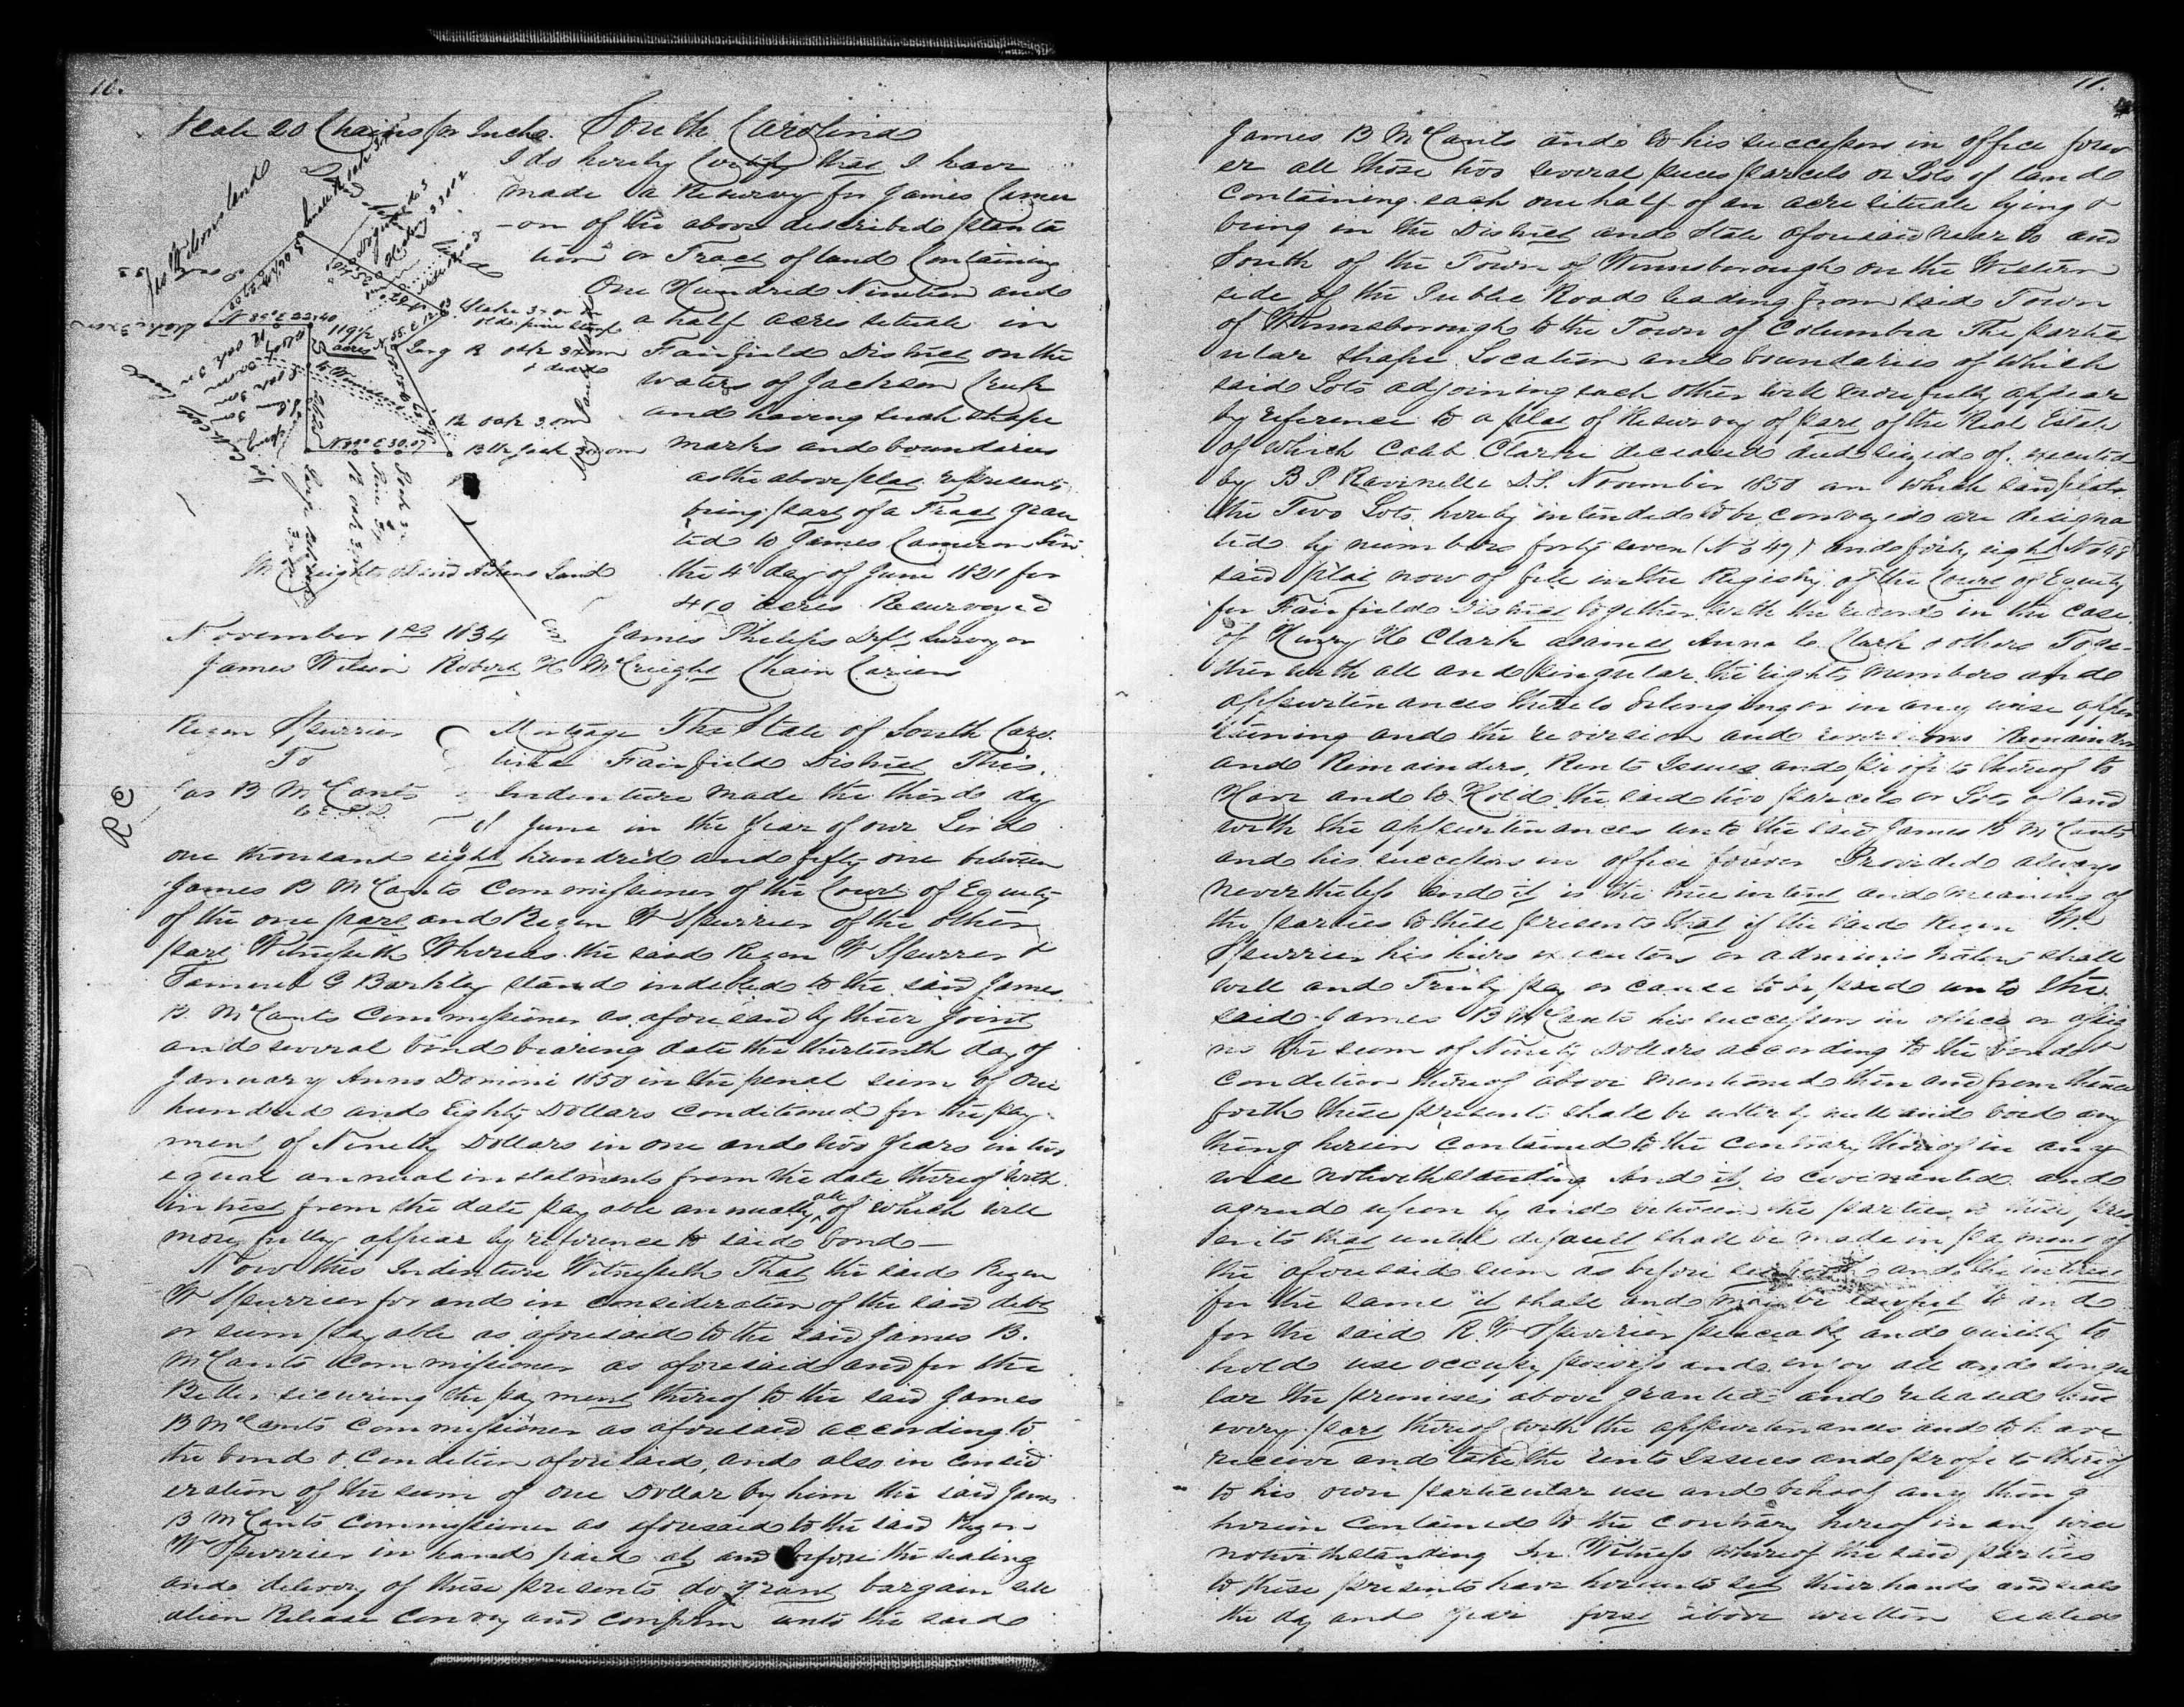 10.
Scale 20 Chains pr Inch. South Carolina
I do hereby Certify that I have
made a Resurvey for James Camer
-on of the above described planta
tion or Tract of land Containing
One Hundred Nineteen and
a half acres situate in
Fairfield District on the
waters of Jackson Creek
and having such shape
marks and boundaries
as the above plat represents
being part of a Tract gran
ted to James Cameron Sen
the 4th day of June 1821 for
410 acres Resurveyed
Jas Wilsons land
N 85 E 22.40
119½
acres
Stake 3x on
old pine stump
R oak 3xom
& dead
R oak 3xm
Blk Jack 3xom
N 80 E 30.07
McCreights land Adkins Land
November 1st 1834 James Philips Dept Surveyor
James Wilson Robert H McCreight Chain Cariers
Rezen Spurrier
To
Jas B McCants
C E F D
R C
Mortgage The State of South Caro.
lina Fairfield District This
Indenture made the third day
of June in the year of our Lord
one thousand eight hundred and fifty one between
James B McCants Commissioner of the Court of Equity
of the one part and Rezen W Spurrier of the other
part Witnesseth Whereas the said Rezen W Spurrier &
G Barkley stand indebted to the said James
B. McCants Commissioner as aforesaid by their Joint
and several bond bearing date the thirteenth day of
January Anno Domini 1850 in the penal sum of One
hundred and Eighty Dollars conditioned for the pay
ment of Ninety Dollars in one and two years in two
equal annual instalments from the date thereof with
intrest from the date payable annually all of which will
more fully appear by reference to said bond —
Now this Indenture Witnesseth That the said Rezen
W Spurrier for and in consideration of the said debt
or sum payable as aforesaid to the said James B.
McCants Commissioner as aforesaid and for the
Better securing the payment thereof to the said James
B McCants Commissioner as aforesaid according to
the bond & Condition aforesaid, and also in Consid
eration of the sum of one Dollar by him the said James
B McCants Commissioner as aforesaid to the said Rezen
W Spurrier in hand paid at and before the sealing
and delivery of these presents do grant bargain sell
alien Release Convey and Confirm unto the said
11.
James B McCants and to his successors in office forev
er all those two several pieces parcels or Lots of land
Containing each one half of an acre situate lying &
being in the District and State aforesaid near to and
South of the Town of Winnsborough on the Western
side of the Public Road leading from said Town
of Winnsborough to the Town of Columbia The partic
ular shape Location and boundaries of which
said Lots adjoining each other will more fully appear
by reference to a plat of Resurvey of part of the Real Estate
of which Caleb Clark deceased died seized of. executed
by B P D.S. November 1850 on which said plat
the Two Lots hereby intended to be conveyed are designa
ted by numbers forty seven (No 47) and forty eight No 48
said plat now of file in the Registry of the Court of Equity
for Fairfield District together with the record in the case
of Henry H Clark against Anna C Clark & others Toge-
ther with all and singular the rights members and
appurtinances thereto belonging or in any wise apper
taining and the reversion and reversions Remainder
and Remainders, Rents Issues and profits thereof to
Have and to Hold the said two parcels or Lots of land
with the appurtinances unto the said James B McCants
and his successors in office forever Provided always
nevertheless and it is the true intent and meaning of
the parties to these presents that if the said Rezen W.
Spurrier his heirs executors or administrators shall
well and Truly pay or cause to be paid unto the
said James B McCants his successors in office or assig
ns the sum of Ninety Dollars according to the bond &
condition thereof above mentioned then and from thence
forth these presents shall be utterly null and void any
thing herein contained to the contrary thereof in any
wise notwithstanding And it is covenanted and
agreed upon by and between the parties to these pres
ents that until default shall be made in payment of
the aforesaid sum as before and the interest
for the same it shall and may be lawful to and
for the said R. W Spurrier peaceably and quietly to
hold use occupy possess and enjoy all and singu
lar the premises above granted and released and
every part thereof with the appurtinances and to have
receive and take the rents Issues and profits thereof
to his own particular use and behoof any thing
herein contained to the contrary hereof in any wise
notwithstanding In Witness whereof the said parties
to these presents have hereunto set their hands and seals
the day and year first above written sealed